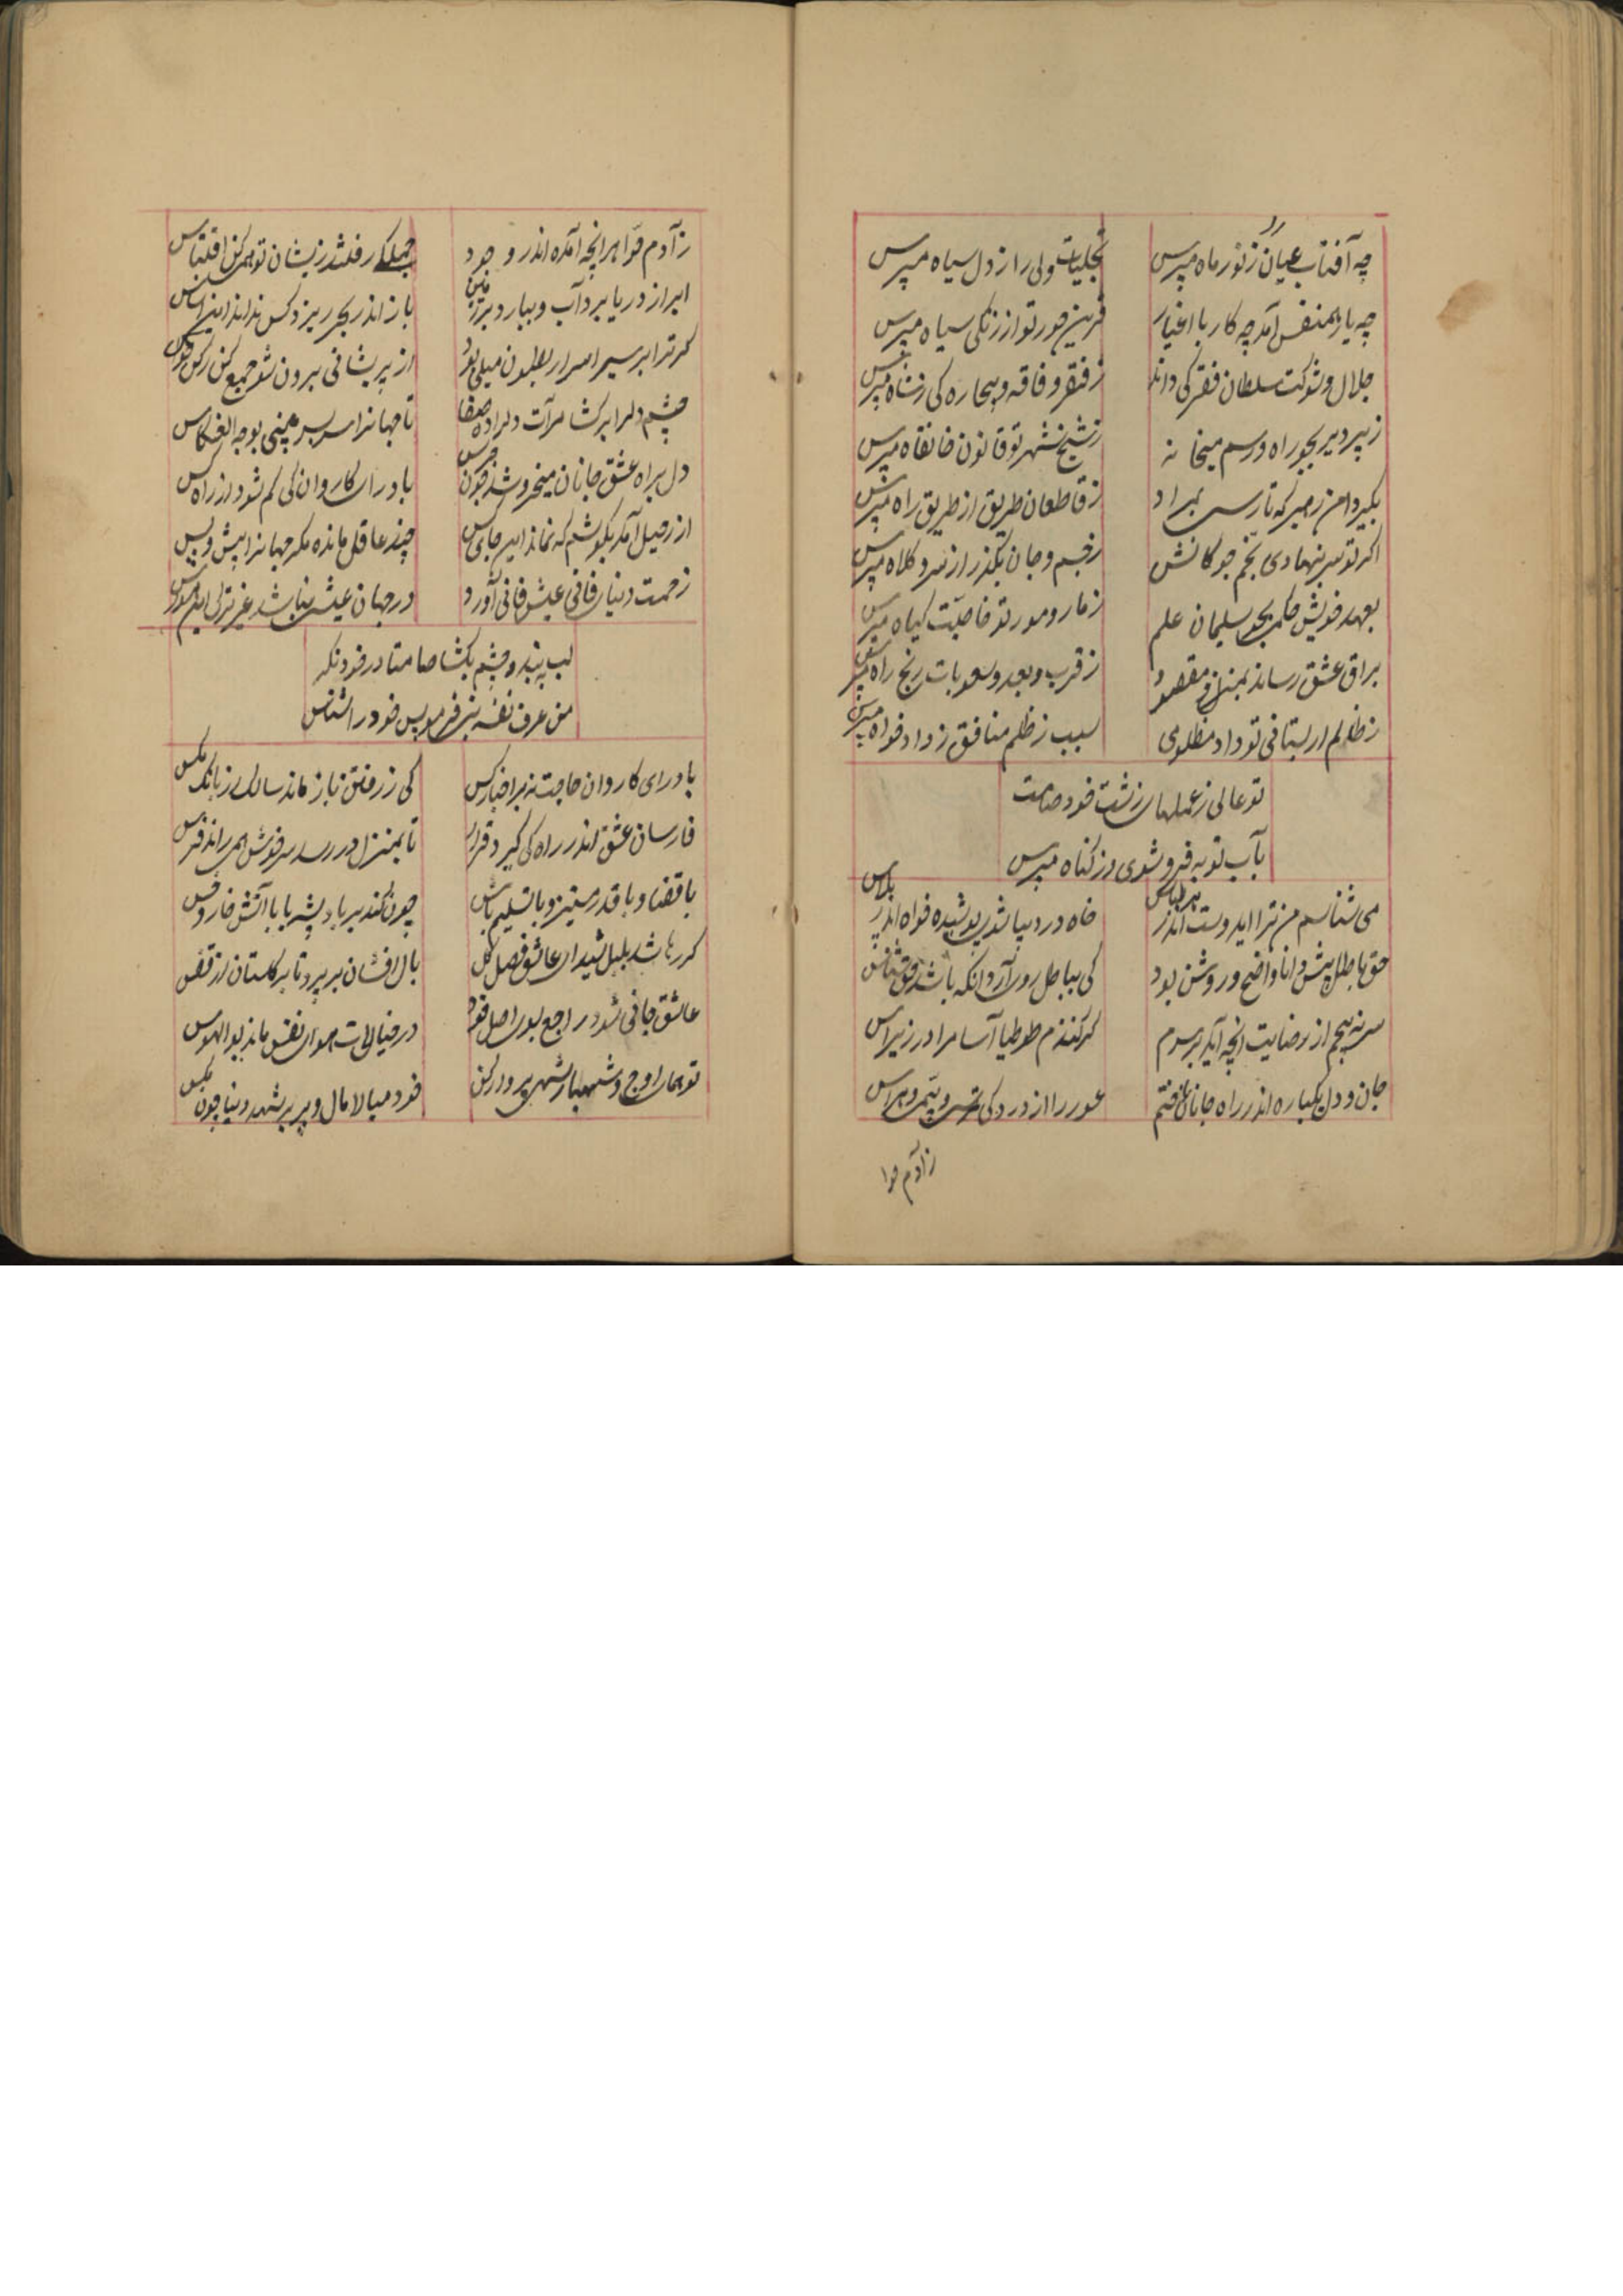 چه آفتاب عیان زنور ماه مپرس
تجلیات ولی را ز دل سیاه مپرس
چه یار همنفس آمد چه کار با اغیار
قرین حور تو از زنگی سیاه مپرس
جلال و شوکت سلطان فقر کی داند
ز فقر و فاقه و بیچاره کی ز شاه مپرس
ز پیر دیر بجو راه و رسم میخانه
ز شیخ شهر تو قانون خانقاه مپرس
بگیر دامن رهبر که تا رسی بمراد
ز قاطعان طریق از طریق راه مپرس
اکر تو سر بنهادی بخم چوکانش
ز جسم و جان بگذر از سر و کلاه مپرس
بعهد خویش حکمت بجو سلیمان علم
ز مار و مور تو خاصیت کیاه مپرس
براق عشق رساند بمنزل مقصود
ز قرب و بعد و صعوبات رنج راه مپرس
ز ظالم ار بستانی تو داد مظلومی
سبب ز ظلم منافق ز داد خواه مپرس
تو عالمی ز عملهای زشت خود صامت
بآب توبه فروشوی وز کناه مپرس
می شناسم من ترا ایدوست اندر هر لباس
خاه در دیبا شدی پوشیده خواه اندر پلاس
حق ز باطل پیش دانا واضح و روشن بود
کی بباطل رو آرد آنکه باشد حق شناس
سر نه پیچم از رضایت آنچه آید بر سرم
کر کنندم طوطیا آسا مرا در زیر آس
جان و دل یکباره اندر راه جانان باختم
عور را از دزد کی ترس و بیم و هراس
زآدم حوا
زآدم حوا هر آنچه آمده اندر وجود
جمله کر رفتند زیشان تو همی کن اقتباس
ابر از دریا برد آب و ببارد بر زمین
باز اندر بحر ریزد کس نداند این اساس
کر ترا بر سیر اسرار بطون میلی بود
از پریشانی برون شو جمع کن رکن حواس
چشم دل را برکشا مرآت دل را ده صفا
تا جهانرا سربسر بینی بوجه انعکاس
دل براه عشق جانان میخروشد چون جرس
با درای کاروان کی کم شود از راه کس
از رحیل آمد بکوشم که نماند این جای کس
چند عاقل مانده مکر جهانرا پیش و پس
زحمت دنیای فانی عیش فانی آورد
لب به بند و چشم بکشا صامتا در خود نکر
من عرف نفسه بنی فرمود پس خود را شناس
با درای کاروان حاجت نه بر اخبار کس
کی ز رفتن باز ماند سالک ز بانک مکس
فارسان عشق اندر راه کی کیرد قرار
تا بمنزل در رسد سر خوش همی راند فرس
با قضا و با قدر مستیز و با تسلیم باش
چون کند بر باد پشه یا با آتش خار و خس
کر رها شد بلبل شیدای عاشق فصل کل
بال افشان بر پرد تا بر کلستان از قفس
عاشق جانی شود راجع بوی اصل خود
در خیالات هوای نفس ماند بوالهوس
تو همای اوج و شهباز شهی پرواز کن
خود میالا مال و پر بر شهد دنیا چون مکس